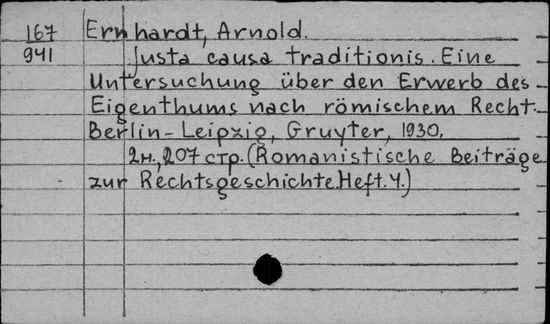 167 Ernhardt, Arnold.
941 Justa causa traditionis. Eine
Untersuchung über den Erwerb des
Eigenthums nach römischem Recht.
Berlin-Leipzig, Gruyter, 1930.
2н., 207 стр. (Romanistische Beiträge
zur Rechtsgeschichte. Heft. 4.)